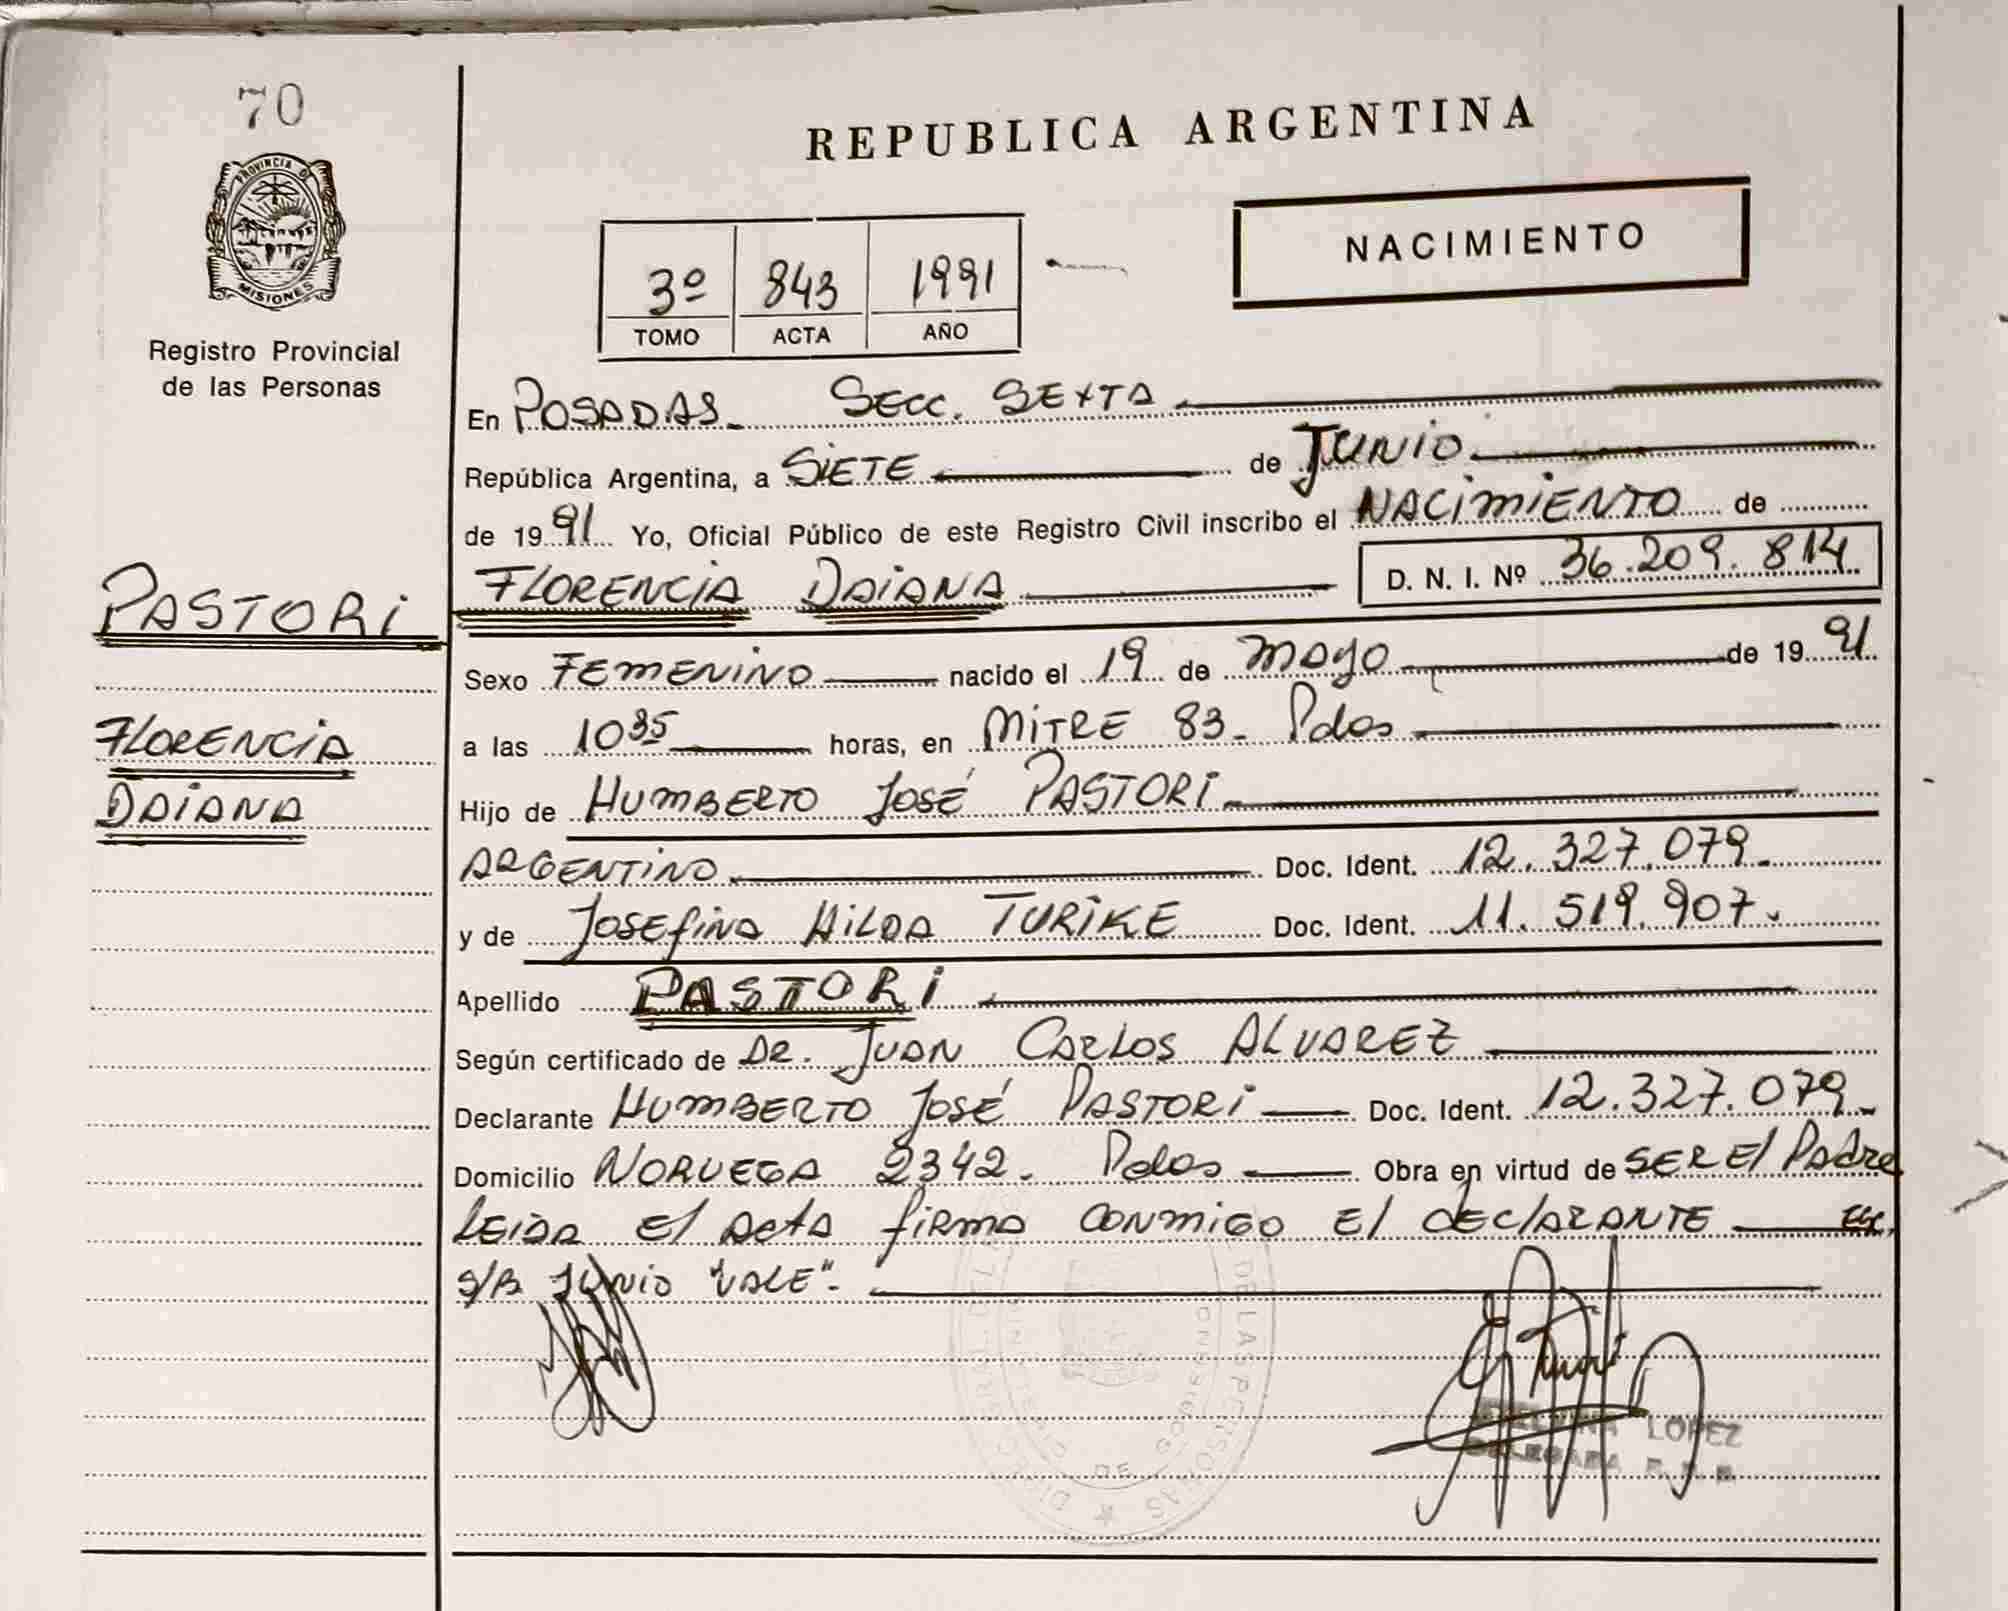 70
PROVINCIA DE
MISIONES
Registro Provincial
de las Personas
REPUBLICA ARGENTINA
NACIMIENTO
3º 843 1991
TOMO ACTA AÑO
En POSADAS. SECC. SEXTA
República Argentina, a SiETE de JUNiO
de 1991 Yo, Oficial Público de este Registro Civil inscribo el NACiMiENTO de
FLORENCiA DAiANA D. N. I. Nº 36.209.814
PASTORi
Sexo FEMENiNO nacido el 19 de mayo de 1991
FLORENCiA
DAiANA
a las 10 35 horas, en MiTRE 83. Pdas
Hijo de HUMBERTO JOSÉ PASTORi
ARGENTiNO Doc. Ident. 12.327.079.
y de JOSEfiNA HiLDA TURiKE Doc. Ident. 11.519.907.
Apellido PASTORi
Según certificado de DR. JUAN CARLOS ALVAREZ
Declarante HUMBERTO JOSÉ PASTORi Doc. Ident. 12.327.079.
Domicilio NORUEGA 2342. Pdas Obra en virtud de SER El Padre
LEiDA El ActA fiRMA CONMiGO El dEClARANTE
S/B JUNiO "VALE".
DE LAS PERSONAS
LOPEZ